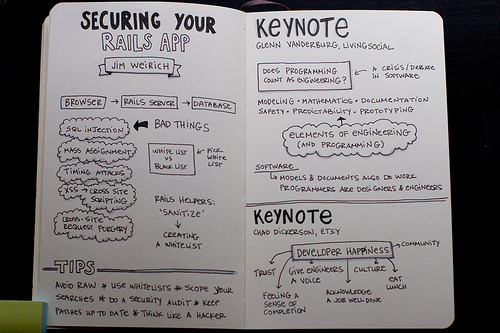 SECURING YOUR
RAILS APP
JIM WEIRICH
BROWSER → RAILS SERVER → DATABASE
SQL INJECTION
BAD THINGS
MASS ASSIGNMENT
TIMING ATTACKS
XSS - CROSS SITE
SCRIPTING
CROSS-SITE
REQUEST FORGERY
WHITE LIST
VS
BLACK LIST
PICK
WHITE
LIST
RAILS HELPERS:
'SANITIZE'
CREATING
A WHITELIST
TIPS
AVOID RAW * USE WHITELISTS * SCOPE YOUR
SEARCHES * DO A SECURITY AUDIT * KEEP
PATCHES UP TO DATE * THINK LIKE A HACKER
KEYNOTE
GLENN VANDERBURG, LIVINGSOCIAL
DOES PROGRAMMING
COUNT AS ENGINEERING?
A CRISIS/DEBATE
IN SOFTWARE
MODELING • MATHEMATICS • DOCUMENTATION
SAFETY • PREDICTABILITY • PROTOTYPING
ELEMENTS OF ENGINEERING
(AND PROGRAMMING)
SOFTWARE
MODELS & DOCUMENTS ALSO DO WORK
PROGRAMMERS ARE DESIGNERS & ENGINEERS
KEYNOTE
CHAD DICKERSON, ETSY
DEVELOPER HAPPINESS
COMMUNITY
TRUST
GIVE ENGINEERS
A VOICE
CULTURE
EAT
LUNCH
FEELING A
SENSE OF
COMPLETION
ACKNOWLEDGE
A JOB WELL DONE